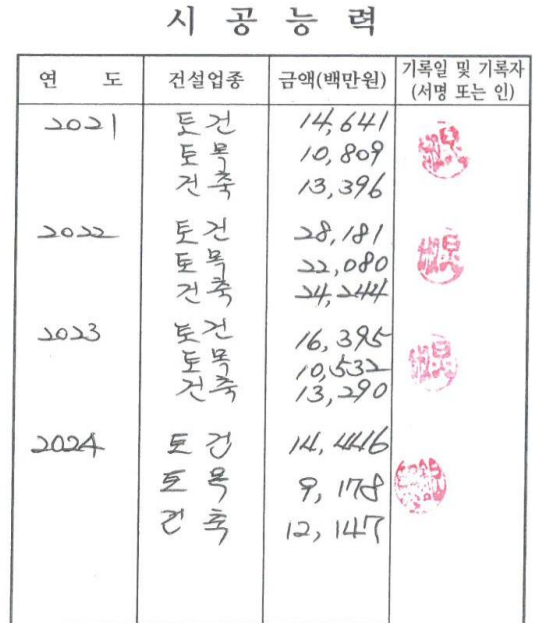 시 공 능 력
연 도 건설업종 금액(백만원) 기록일 및 기록자
(서명 또는 인)
2021 토건 14,641
토목 10,809
건축 13,396
2022 토건 28,181
토목 22,080
건축 24,244
2023 토건 16,395
토목 10,532
건축 13,290
2024 토건 14,446
토목 9,178
건축 12,147